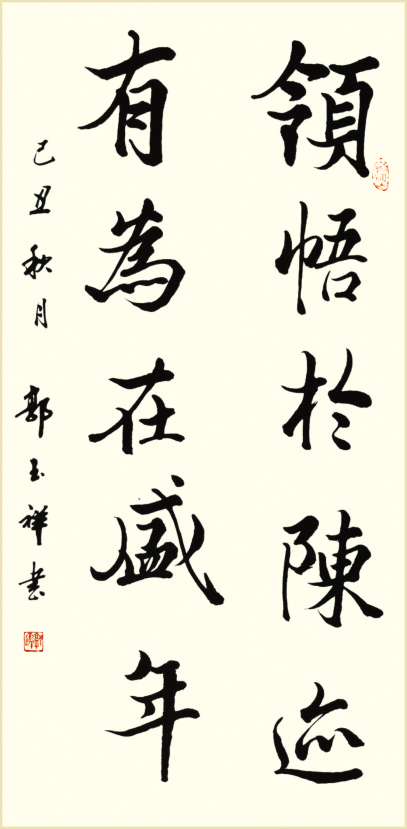 領悟於陳迹
有為在盛年
己丑秋月 郭玉祥書